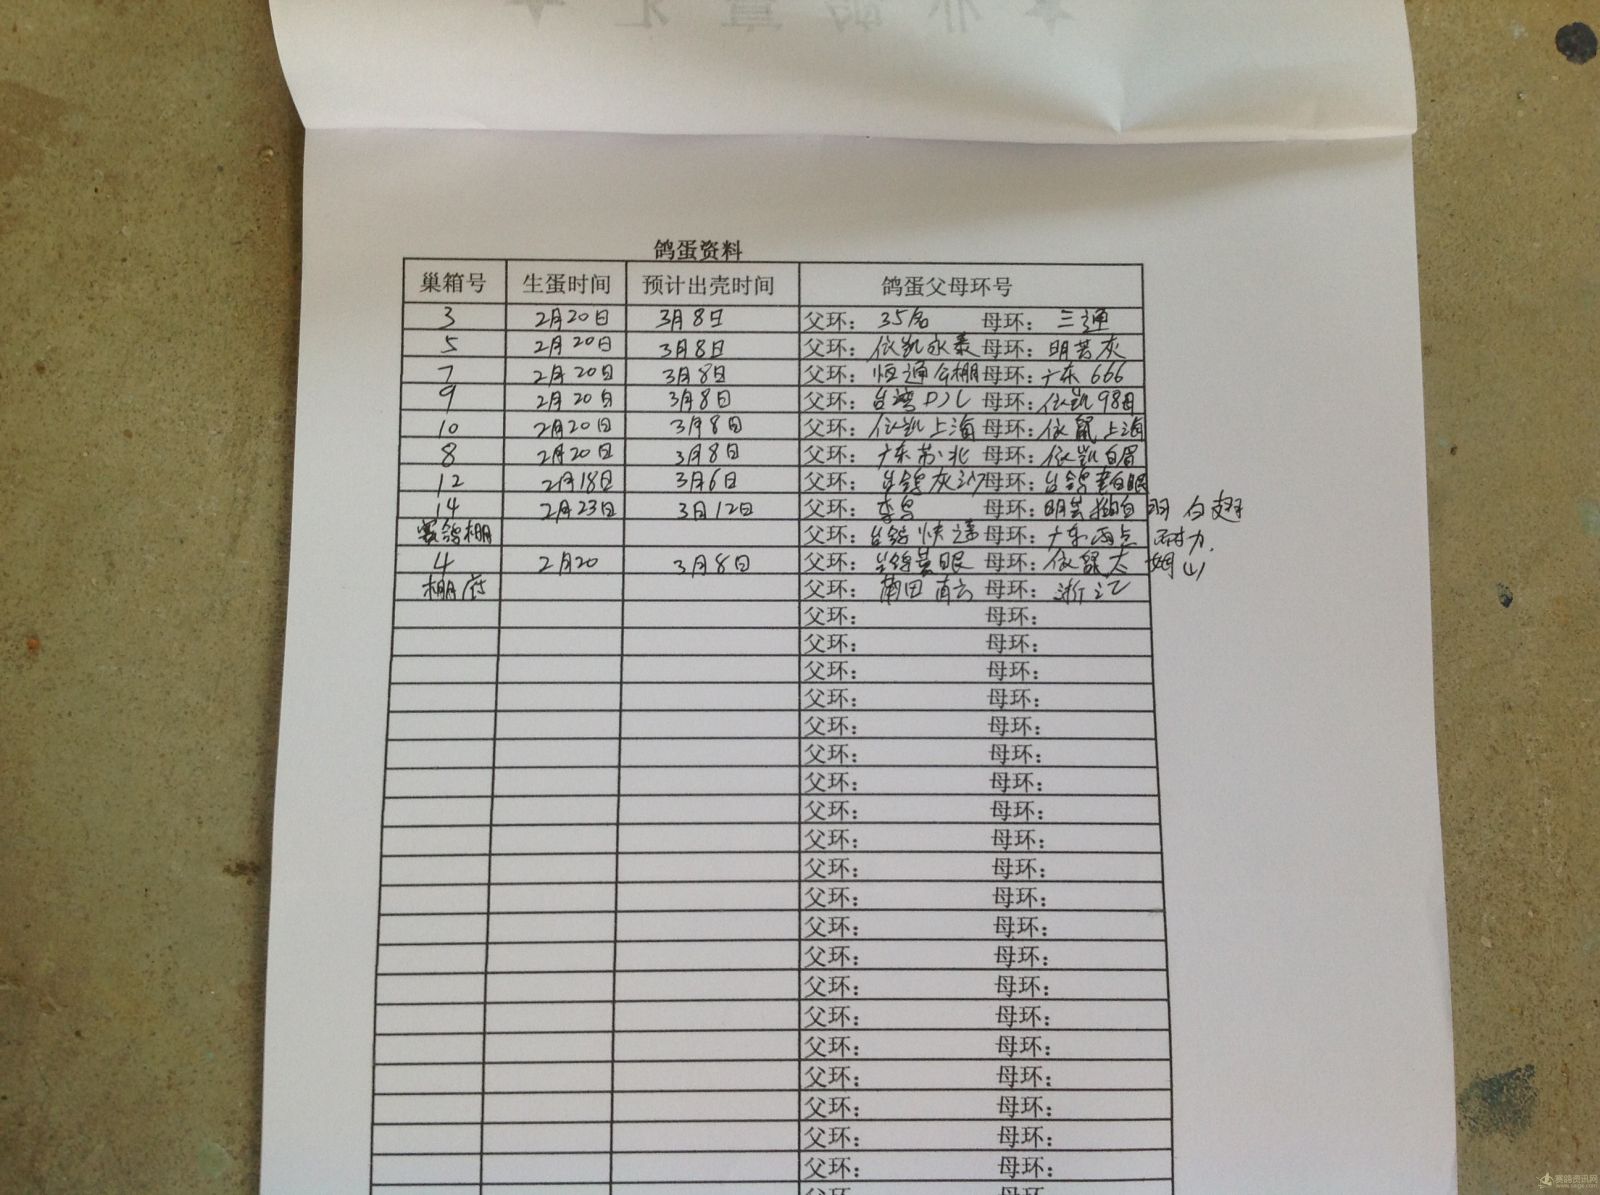 鸽蛋资料
巢箱号 生蛋时间 预计出壳时间 鸽蛋父母环号
3 2月20日 3月8日 父环： 35名 母环： 三通
5 2月20日 3月8日 父环： 依凯永泰 母环： 明芸灰
7 2月20日 3月8日 父环： 恒通公棚 母环： 广东666
9 2月20日 3月8日 父环： 台湾 母环： 依凯98
10 2月20日 3月8日 父环： 依凯上海 母环： 依鼠上海
8 2月20日 3月8日 父环： 广东苏北 母环： 依凯白眉
12 2月18日 3月6日 父环： 台鸽灰沙 母环： 台鸽
14 2月23日 3月12日 父环： 李鸟 母环： 明芸 白羽 白翅
赛鸽棚 父环： 台鸽快速 母环： 广东两点 耐力
4 2月20 3月8日 父环： 台鸽黄眼 母环： 依鼠大 (1)
棚底 父环： 莆田 母环： 浙江
父环： 母环：
父环： 母环：
父环： 母环：
父环： 母环：
父环： 母环：
父环： 母环：
父环： 母环：
父环： 母环：
父环： 母环：
父环： 母环：
父环： 母环：
父环： 母环：
父环： 母环：
父环： 母环：
父环： 母环：
父环： 母环：
父环： 母环：
父环： 母环：
父环： 母环：
父环： 母环：
父环： 母环：
赛鸽资讯网